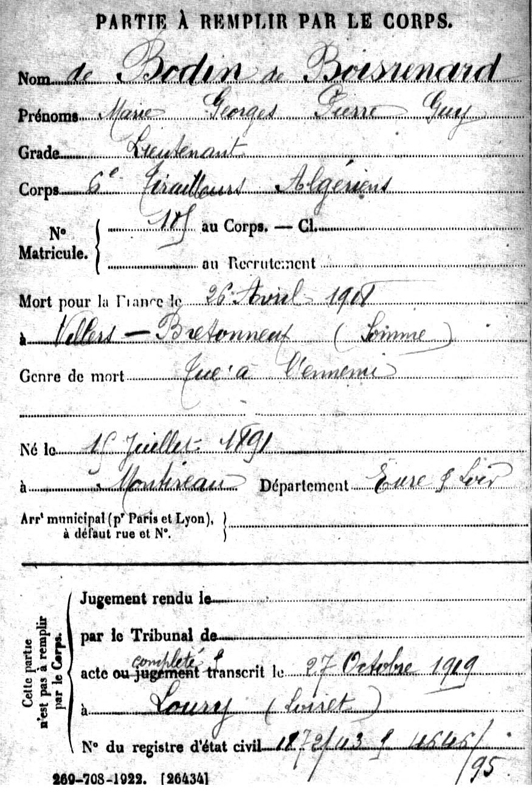 PARTIE À REMPLIR PAR LE CORPS.
Nom de Bodin de Boisrenard
Prénoms Marie Georges Pierre Guy
Grade Lieutenant
Corps 6e Tirailleurs Algériens
N° Matricule. { 105 au Corps. — Cl.
au Recrutement
Mort pour la France le 26 Avril 1918
à Villers - Bretonneux (Somme)
Genre de mort Tué à l'ennemi
Né le 15 Juillet 1891
à Montireau Département Eure & Loir
Arrt municipal (pr Paris et Lyon), }
à défaut rue et N°.
Cette partie n'est pas à remplir par le Corps. {
Jugement rendu le
par le Tribunal de
complété
acte ou jugement transcrit le 27 Octobre 1919
à Loury (Loiret)
N° du registre d'état civil 1872/43 & 4545/
95
269-708-1922. [26434]